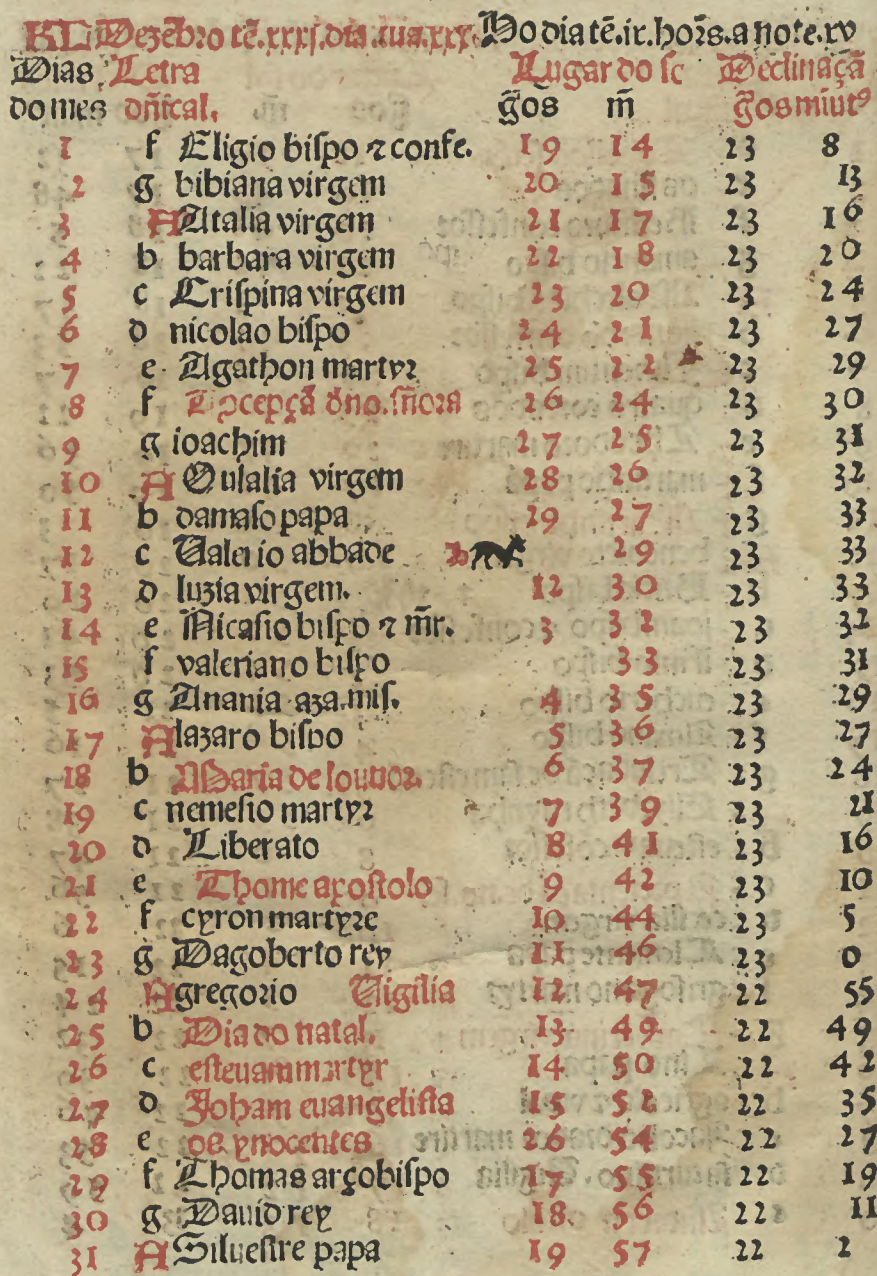 KL Dezẽbro tẽ.xxxj.dia.lua.xxx. Ho dia tẽ.ix.hoꝛs.a note.xv
Dias Letra Lugar do ſc Declinaçã
do mes dñical. g̃os m̃ g̃os miutꝰ
1 f Eligio biſpo ⁊ confe. 19 14 23 8
2 g bibiana virgem 20 15 23 13
3 A Atalia virgem 21 17 23 16
4 b barbara virgem 22 18 23 20
5 c Criſpina virgem 23 20 23 24
6 d nicolao biſpo 24 21 23 27
7 e Agathon martyꝛ 25 22 23 29
8 f Cõcepçã d̃no.ſñoꝛa 26 24 23 30
9 g ioachim 27 25 23 31
10 A Oulalia virgem 28 26 23 32
11 b damaſo papa 29 27 23 33
12 c Ualerio abbade 29 23 33
13 d luzia virgem. 12 30 23 33
14 e Nicaſio biſpo ⁊ m̃r. 3 32 23 32
15 f valeriano biſpo 33 23 31
16 g Anania aza.miſ. 4 35 23 29
17 A lazaro biſpo 5 36 23 27
18 b Maria de louuoꝛ. 6 37 23 24
19 c nemeſio martyꝛ 7 39 23 21
20 d Liberato 8 41 23 16
21 e Thome apoſtolo 9 42 23 10
22 f cyron martyꝛe 10 44 23 5
23 g Dagoberto rey 11 46 23 0
24 A gregoꝛio Uigilia 12 47 22 55
25 b Dia do natal. 13 49 22 49
26 c eſteuam martyr 14 50 22 42
27 d Joham euangeliſta 15 52 22 35
28 e os ynocentes 26 54 22 27
29 f Thomas arçobiſpo 17 55 22 19
30 g Dauid rey 18. 56 22 11
31 A Silueſtre papa 19 57 22 2